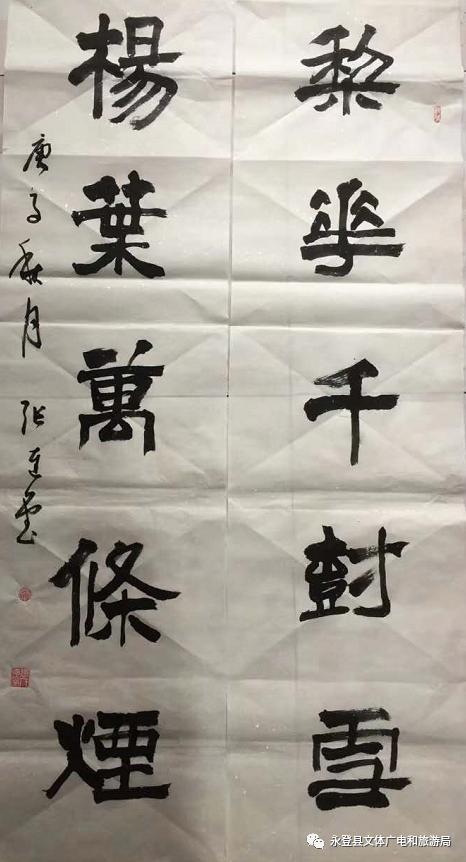 棃華千尌雪
楊葉萬條煙
庚子秋月 张
永登县文体广电和旅游局